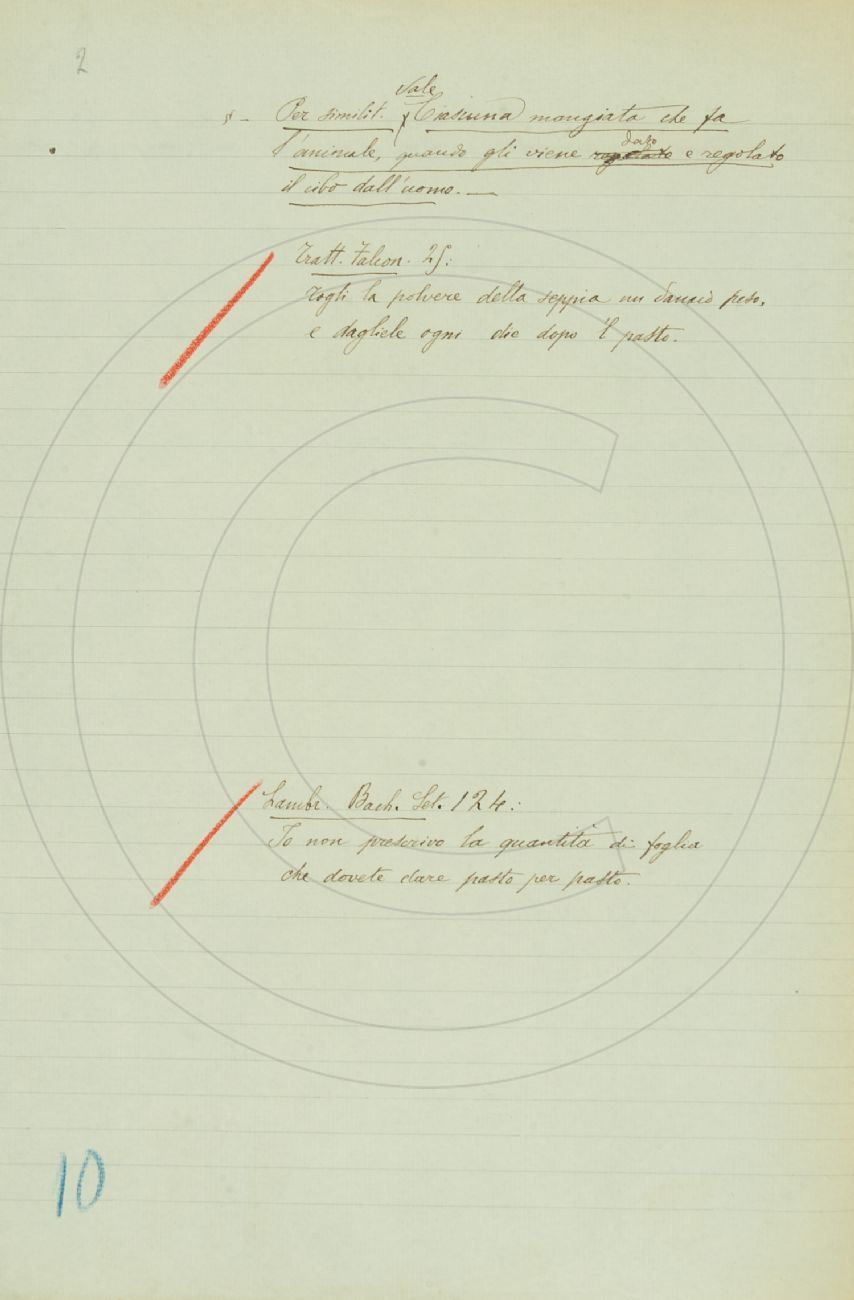 2
§ - Per similit. Vale Ciascuna mangiata che fa
l'animale, quando gli viene regolato dato e regolato
il cibo dall'uomo. —
Tratt. Falcon. 25:
Togli la polvere della seppia un danaio peso,
e dagliele ogni die dopo 'l pasto.
Lambr. Bach. Set. 124:
Io non prescrivo la quantità di foglia
che dovete dare pasto per pasto.
10